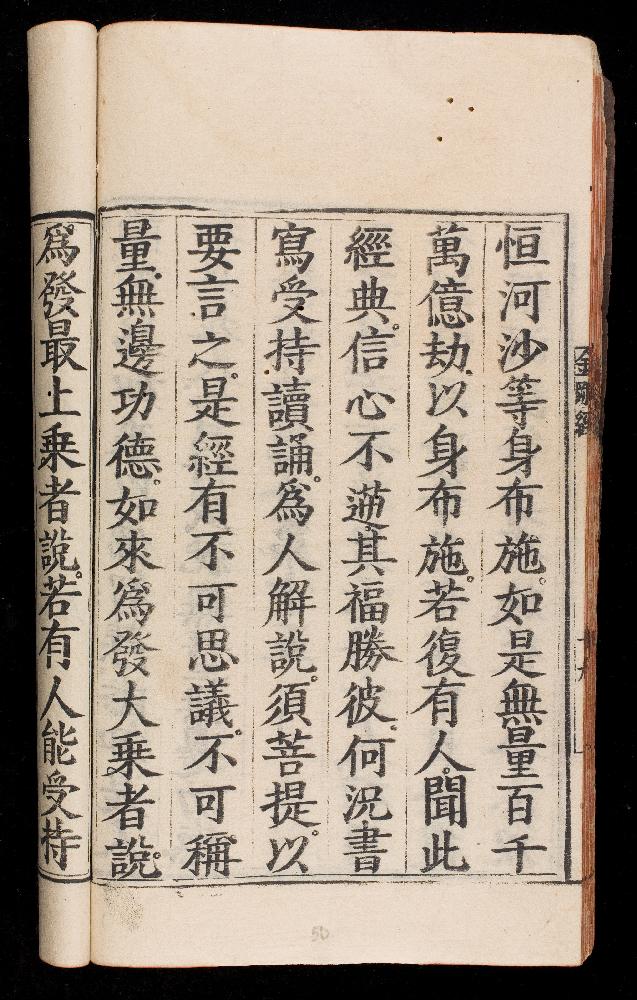 恒河沙等身布施。如是無量百千
萬億劫。以身布施。若復有人。聞此
經典。信心不逆。其福勝彼。何況書
寫受持。讀誦。為人解説。須菩提。以
要言之。是經有不可思議。不可稱
量。無邊功德。如來為發大乘者說。
為發最上乘者說。若有人能受持
50